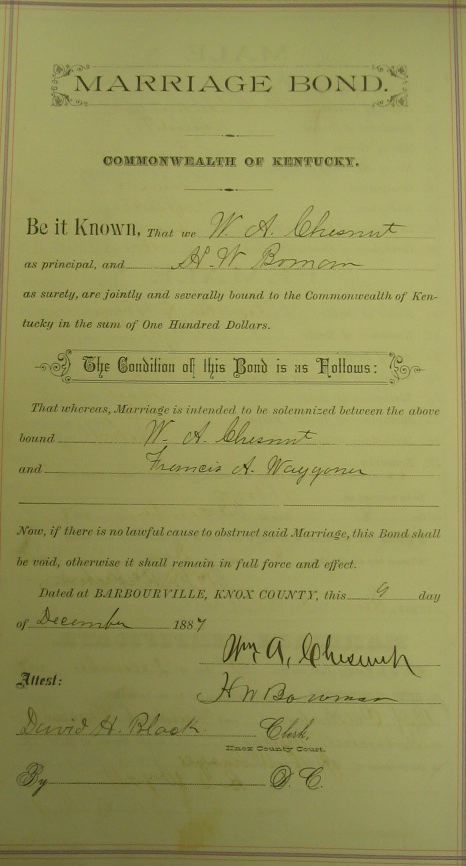 MARRIAGE BOND.
COMMONWEALTH OF KENTUCKY.
Be it Known, That we W. A. Chesnut
as principal, and H. W. Bowman
as surety, are jointly and severally bound to the Commonwealth of Ken-
tucky in the sum of One Hundred Dollars.
The Condition of this Bond is as Follows:
That whereas, Marriage is intended to be solemnized between the above
bound W. A. Chesnut
and Francis A. Waggoner
Now, if there is no lawful cause to obstruct said Marriage, this Bond shall
be void, otherwise it shall remain in full force and effect.
Dated at BARBOURVILLE, KNOX COUNTY, this 9 day
of December 1887
Wm A. Chesnut
Attest:
H W Bowman
David H. Black Clerk,
Knox County Court.
By D. C.